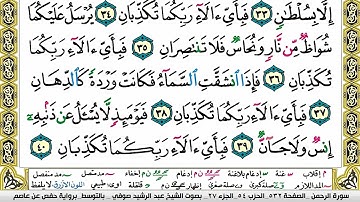 إِلَّا بِسُلْطَٰنٍ ٣٣ فَبِأَيِّ ءَالَآءِ رَبِّكُمَا تُكَذِّبَانِ ٣٤ يُرْسَلُ عَلَيْكُمَا
شُوَاظٌ مِّن نَّارٍ وَنُحَاسٌ فَلَا تَنتَصِرَانِ ٣٥ فَبِأَيِّ ءَالَآءِ رَبِّكُمَا
تُكَذِّبَانِ ٣٦ فَإِذَا ٱنشَقَّتِ ٱلسَّمَآءُ فَكَانَتْ وَرْدَةً كَٱلدِّهَانِ
٣٧ فَبِأَيِّ ءَالَآءِ رَبِّكُمَا تُكَذِّبَانِ ٣٨ فَيَوْمَئِذٍ لَّا يُسْـَٔلُ عَن ذَنۢبِهِۦٓ
إِنسٌ وَلَا جَآنٌّ ٣٩ فَبِأَيِّ ءَالَآءِ رَبِّكُمَا تُكَذِّبَانِ ٤٠
سورة الرحمن الصفحة ٥٣٢ الحزب ٥٤ الجزء ٢٧ بالتوسط بصوت الشيخ عبد الرشيد صوفي برواية حفص عن عاصم